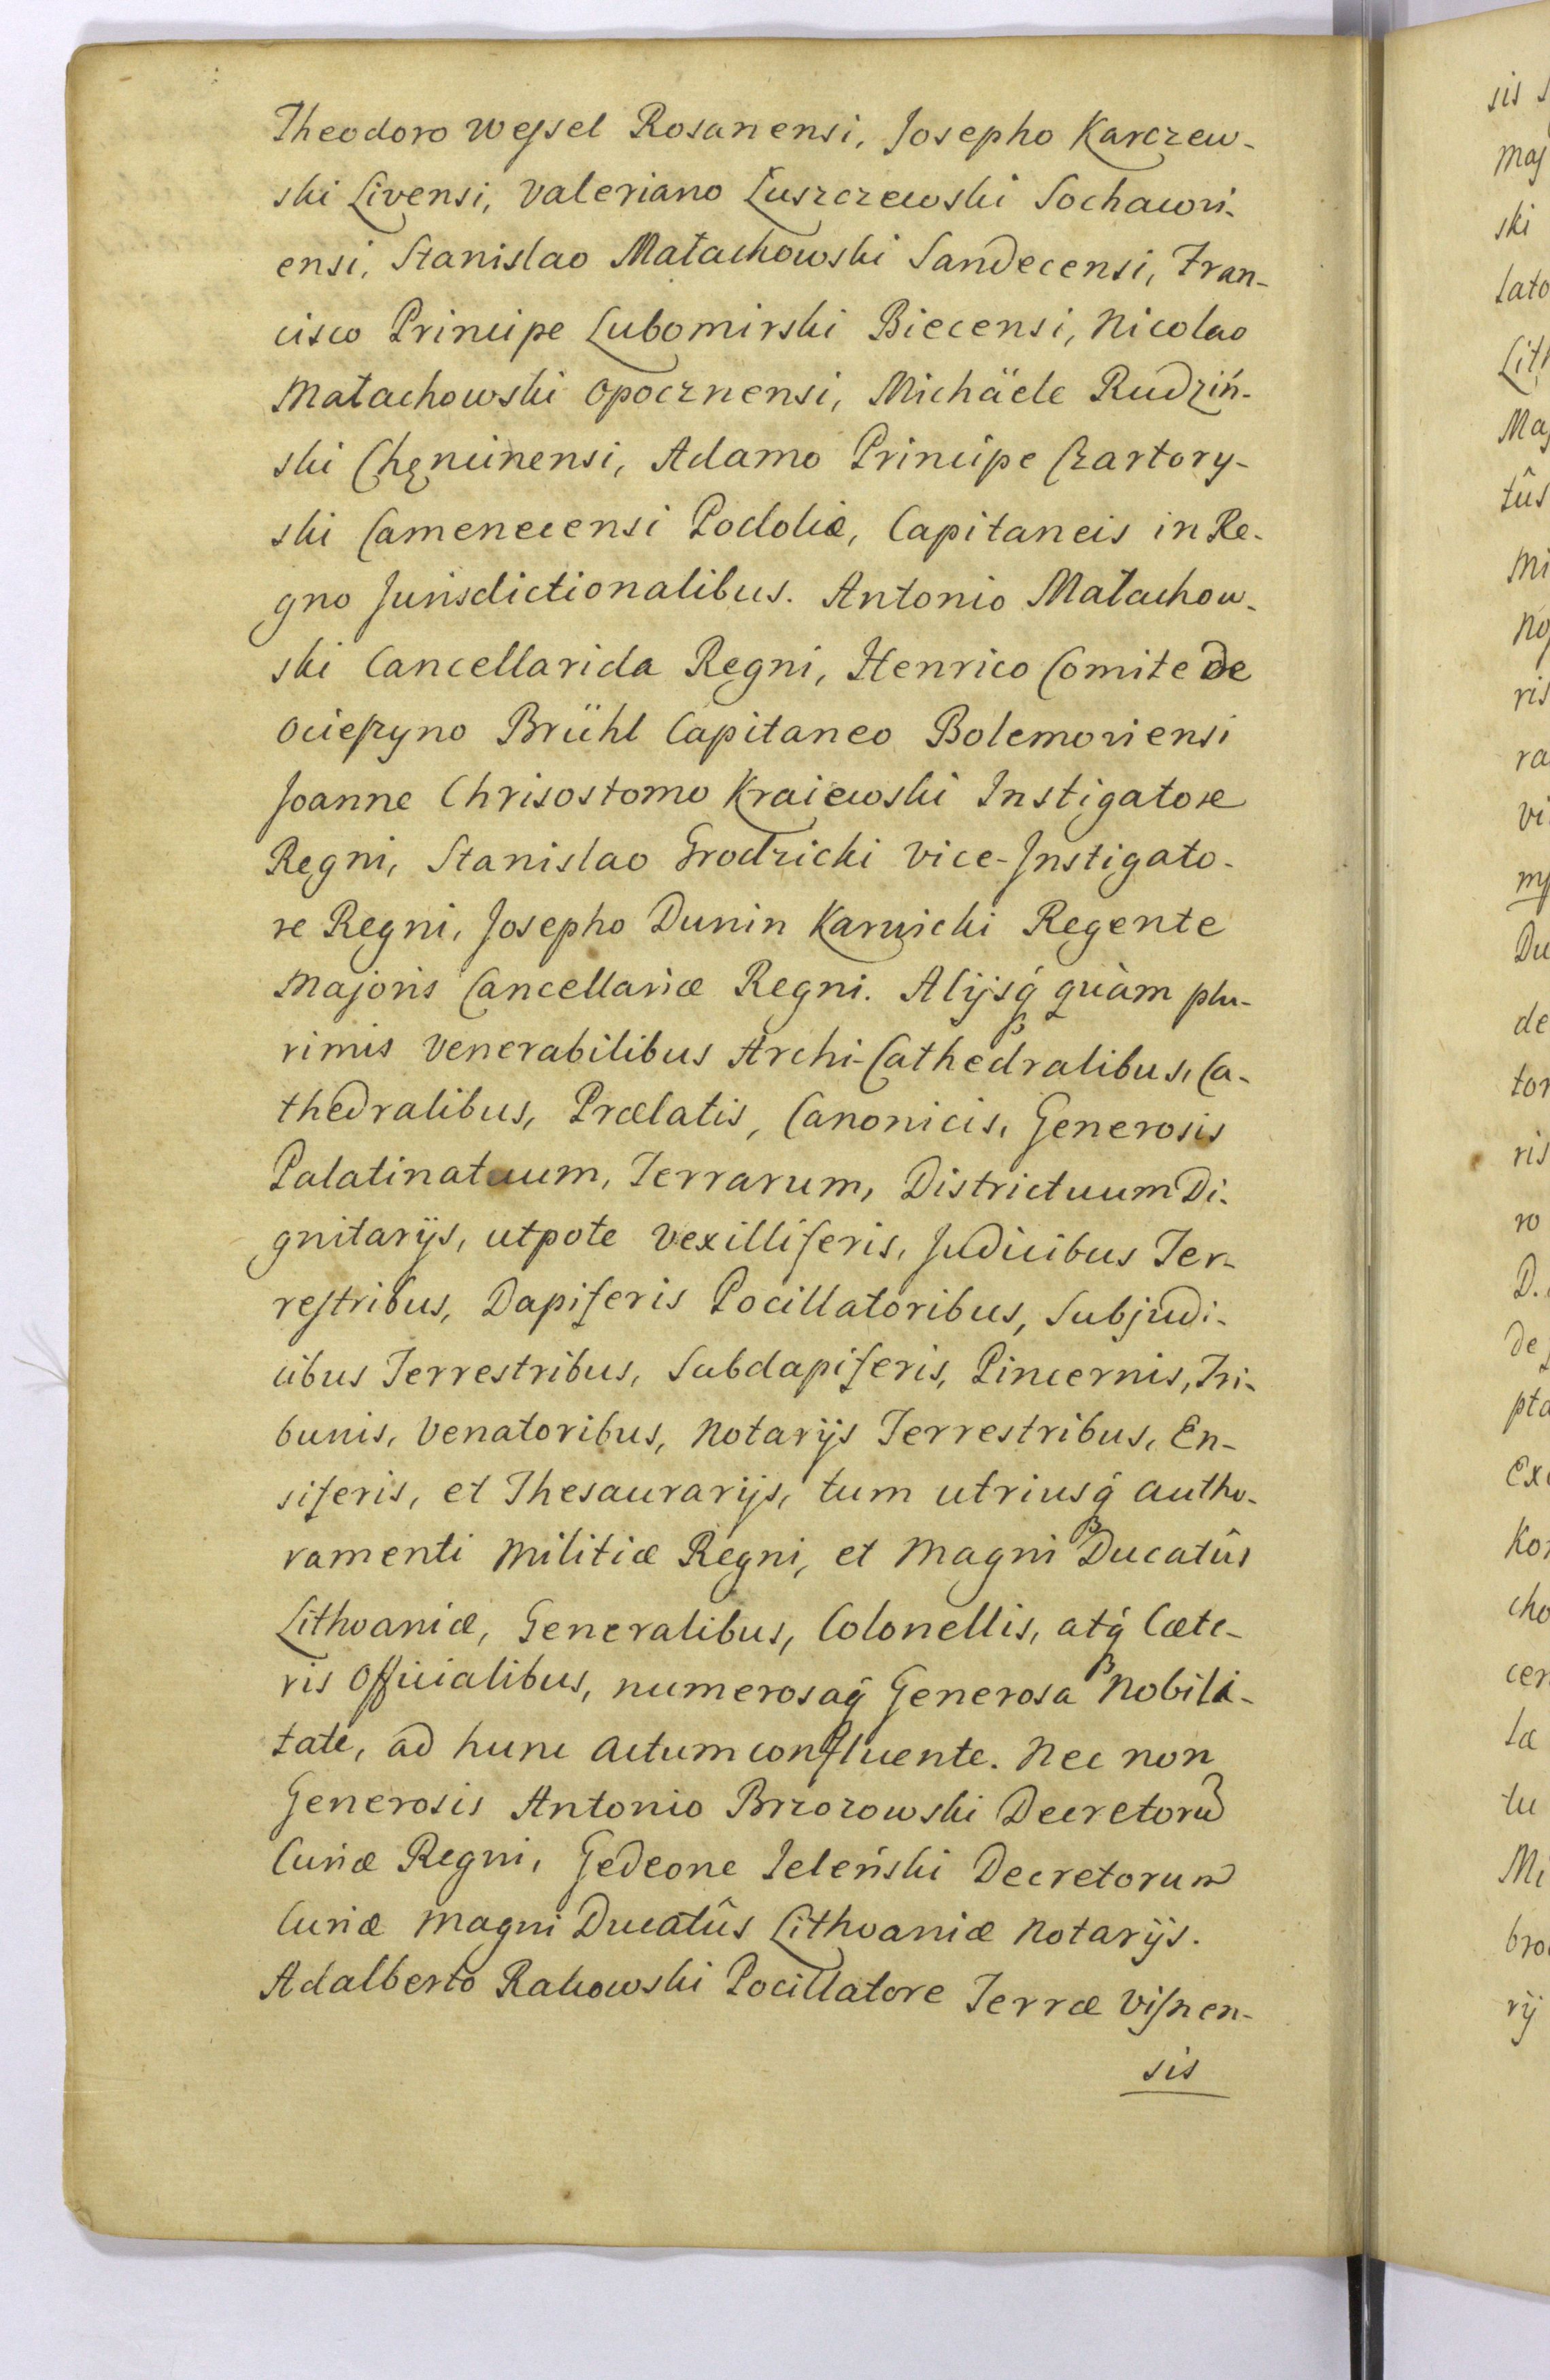 Theodoro Wessel Rosanensi, Josepho Karczew-
ski Livensi, Valeriano Łuszczewski Sochawi-
ensi, Stanislao Małachowski Sandecensi, Fran-
cisco Principe Lubomirski Biecensi, Nicolao
Małachowski Opocznensi, Michäele Rudziń-
ski Chęncinensi, Adamo Principe Czartory-
ski Camenecensi Podoliæ, Capitaneis in Re-
gno Jurisdictionalibus. Antonio Małachow-
ski Cancellarida Regni, Henrico Comite de
Ocieszyno Brühl Capitaneo Bolemoviensi
Joanne Chrisostomo Kraiewski Instigatore
Regni, Stanislao Grodzicki Vice-Instigato-
re Regni, Josepho Dunin Karwicki Regente
Majoris Cancellariæ Regni. Alijsq́ quàm plu-
rimis Venerabilibus Archi-Cathedralibus, Ca-
thedralibus, Prælatis, Canonicis, Generosis
Palatinatuum, Terrarum, Districtuum Di-
gnitarijs, utpote Vexilliferis, Judicibus Ter-
restribus, Dapiferis Pocillatoribus, Subjudi-
cibus Terrestribus, Subdapiferis, Pincernis, Tri-
bunis, Venatoribus, Notarijs Terrestribus, En-
siferis, et Thesaurarijs, tum utriusq́ autho-
ramenti Militiæ Regni, et Magni Ducatûs
Lithvaniæ, Generalibus, Colonellis, atq́ Cæte-
ris Officialibus, numerosaq́ Generosa Nobili-
tate, ad hunc actum confluente. Nec non
Generosis Antonio Brzozowski Decretorū
Curiæ Regni, Gedeone Jeleński Decretorum
Curiæ Magni Ducatûs Lithvaniæ Notarijs.
Adalberto Rakowski Pocillatore Terræ Visnen-
sis
sis
Maj
ski
lato
Lith
Maj
tûs
Mi
ris
ra
vi
Du
de
tor
ris
ro
D.
de
pta
Exc
Kor
cho
cer
la
tu
Mi
bro
rij